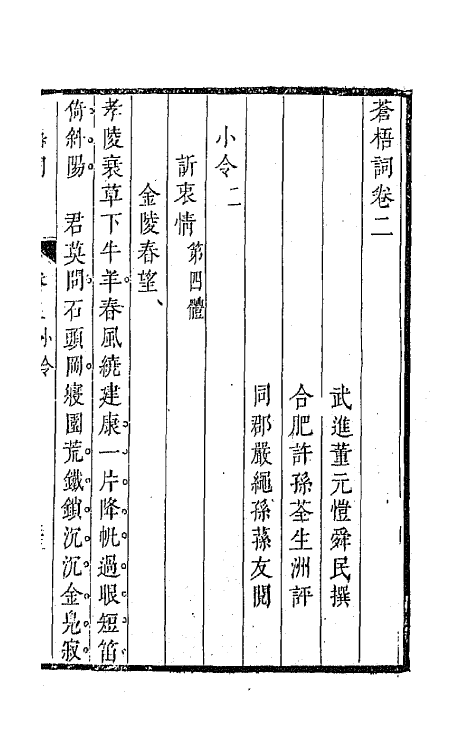 蒼梧詞卷二
武進董元愷舜民撰
合肥許孫荃生洲評
同郡嚴繩孫蓀友閱
小令二
訴衷情第四體
金陵春望、
孝陵衰草下牛羊。春風繞建康。一片降帆過眼短笛
倚斜陽。　君莫問石頭岡。寢園荒。鐵鎖沉沉。金鳧寂
小令